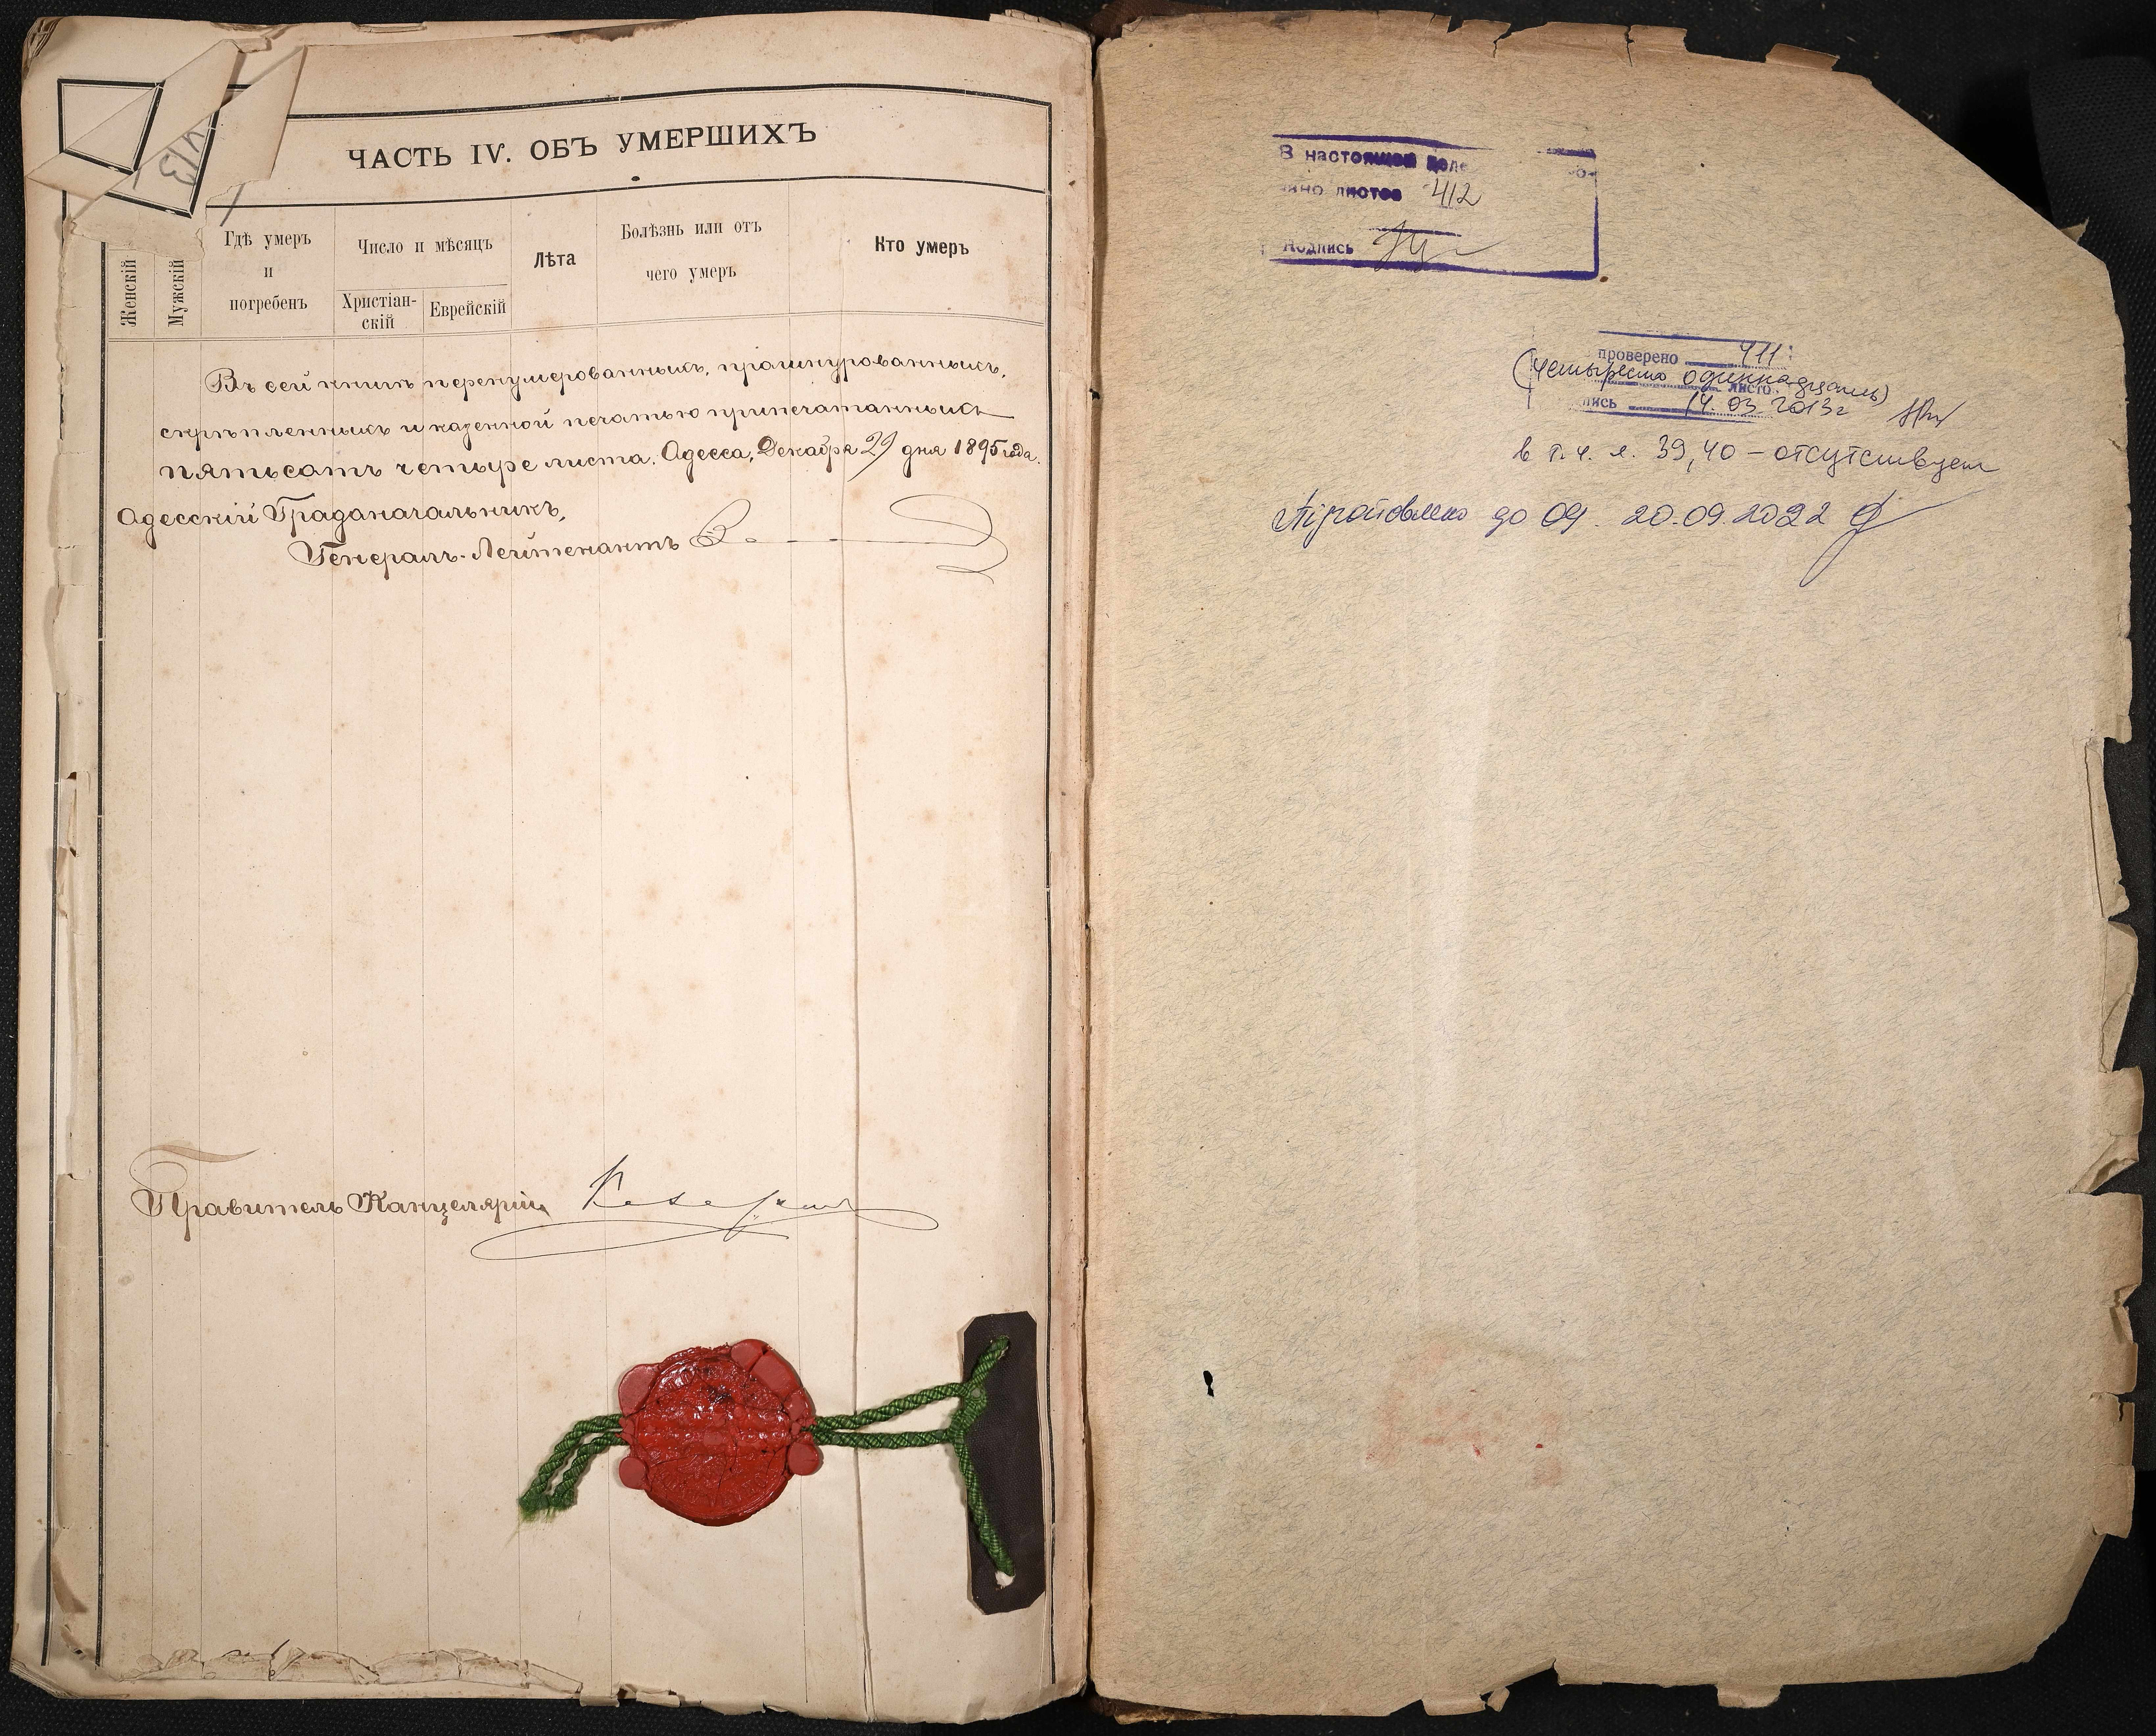 413
ЧАСТЬ IV. ОБЪ УМЕРШИХЪ
Женскій
Мужскій
Гдѣ умеръ
и
погребенъ
Число и мѣсяцъ
Христіан-
скій
Еврейскій
Лѣта
Болѣзнь или отъ
чего умеръ
Кто умеръ
Въ сей книгѣ перенумерованныхъ, прошнурованныхъ,
скрѣпленныхъ и казенной печатью припечатанныхъ
пятьсотъ четыре листа. Одесса, Декабря 29 дня 1895 года.
Одесскій Градоначальникъ,
Генералъ-Лейтенантъ
Правитель Канцеляріи
В настоящем деле
листов 412
Подпись
проверено 411
(четыреста одиннадцать)
листов
пись 14.03.2013г
в т.ч. л. 39,40 – отсутствуют
до 09. 20.09.2022